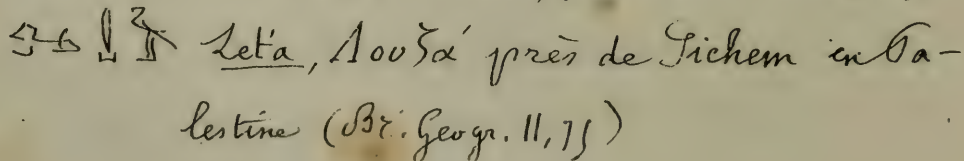 Leťa, Λουζά près de Sichem in Pa-
lestine (Br. Geogr. II, 75)